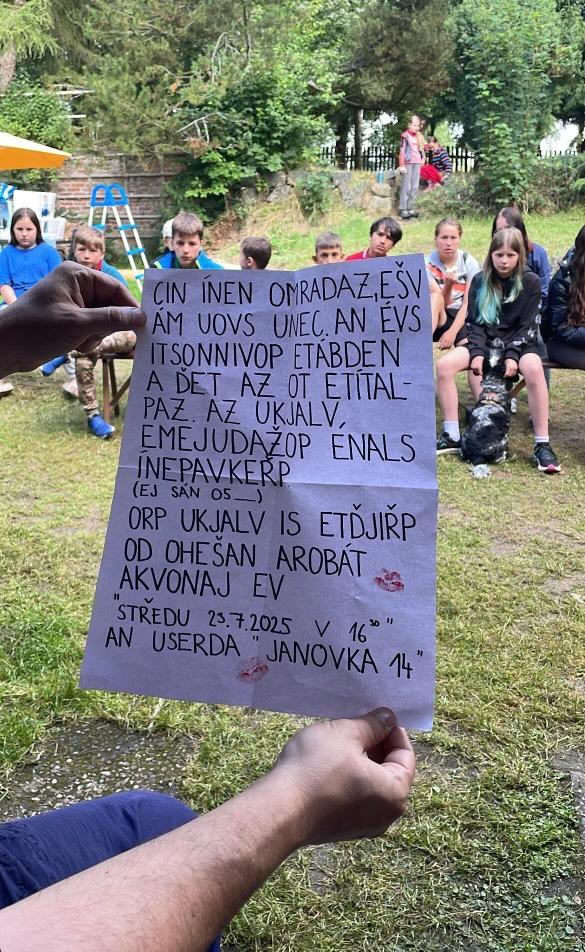 CIN ÍNEN OMRADAZ,EŠV
ÁM UOVS UNEC. AN ÉVS
ITSONNIVOP ETÁBDEN
A ĎET AZ OT ETÍTAL-
PAZ. AZ UKJALV,
EMEJUDAŽOP ÉNALS
ÍNEPAVKEŘP
(EJ SÁN 05__)
ORP UKJALV IS ETĎJIŘP
OD OHEŠAN AROBÁT
AKVONAJ EV
"STŘEDU 23.7.2025 V 16³⁰"
AN USERDA "JANOVKA 14"